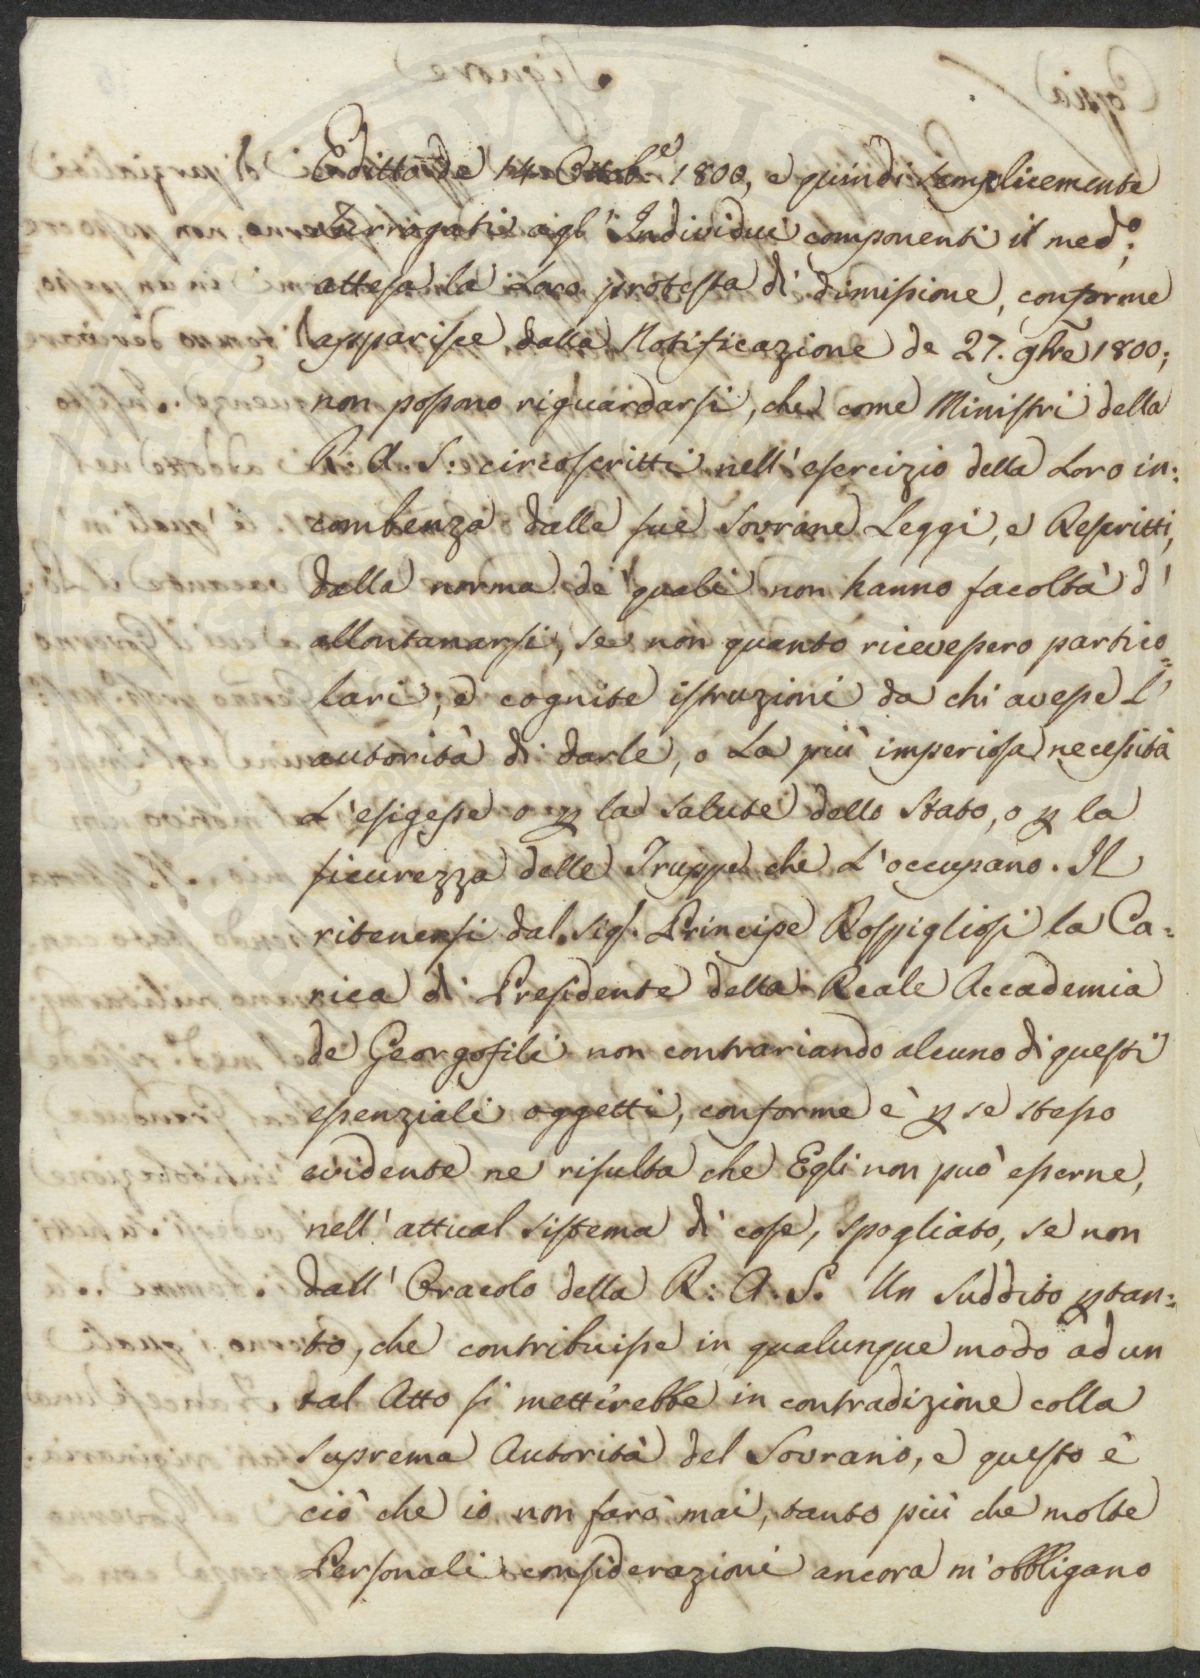 Editto de 14 Ottob.e 1800, e quindi semplicemente
surrogati agl'Individui componenti il med.o;
attesa la Loro protesta di dimissione, conforme
apparisce dalla Notificazione de 27. 9bre 1800;
non possono riguardarsi, che come Ministri della
R: A. S: circoscritti nell'esercizio della Loro in:
combenza dalle sue Sovrane Leggi, e Rescritti,
dalla norma de quali non hanno facoltà d'
allontanarsi, se non quanto ricevessero partico=
lari, e cognite istruzioni da chi avesse l'
autorità di darle, o La più imperiosa necessità
L'esigesse o p la salute dello Stato, o p la
sicurezza delle Truppe che L'occupano. Il
ritenersi dal Sig.r Principe Rospigliosi la Ca=
rica di Presidente della Reale Accademia
de Georgofili non contrariando alcuno di questi
essenziali oggetti, conforme è p se stesso
evidente ne risulta che Egli non può esserne,
nell'attual sistema di cose, spogliato, se non
dall'Oracolo della R: A. S. Un Suddito ptan=
to, che contribuisse in qualunque modo ad un
tal Atto si metterebbe in contradizione colla
Suprema Autorità del Sovrano, e questo è
ciò che io non farò mai, tanto più che molte
Personali considerazioni ancora m'obbligano